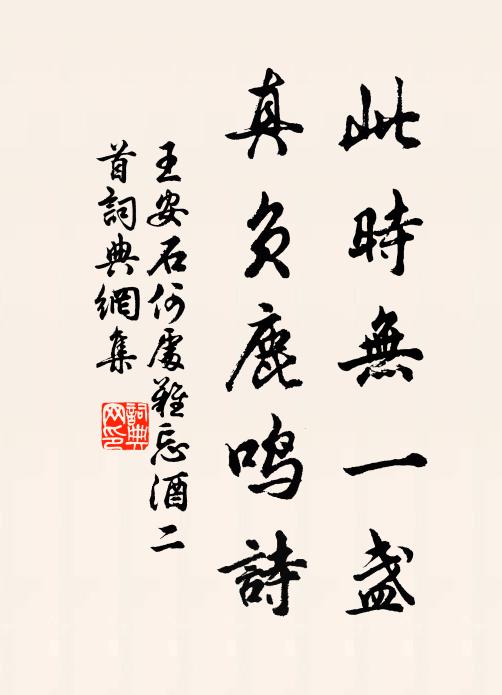 此時無一盏
真負鹿鳴詩
王安石何處難忘酒二
首詞典網集
詞典
网印